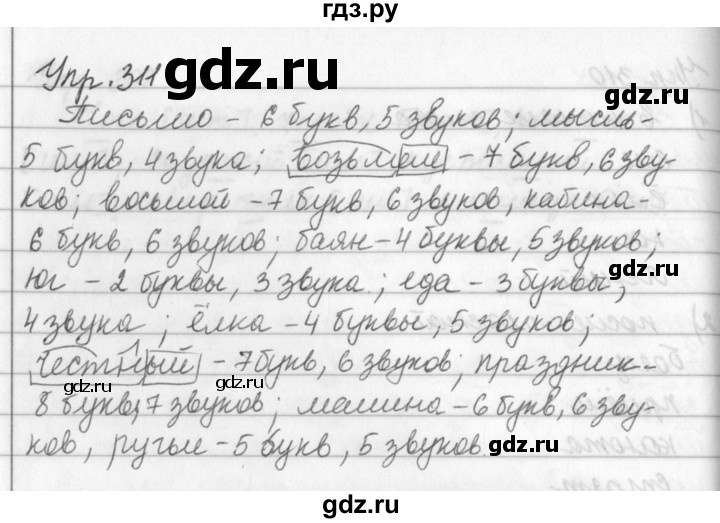 гдз.ру
Упр. 311
Письмо - 6 букв, 5 звуков; мысль-
5 букв, 4 звука; возьмём - 7 букв, 6 зву-
ков; восьмой - 7 букв, 6 звуков, кабина-
6 букв, 6 звуков; баян - 4 буквы, 5 звуков;
юг - 2 буквы, 3 звука; еда - 3 буквы,
4 звука; ёлка - 4 буквы, 5 звуков;
честный - 7 букв, 6 звуков; праздник-
8 букв, 7 звуков; машина - 6 букв, 6 зву-
ков, ручьи - 5 букв, 5 звуков
gdz.ru
gdz.ru
gdz.ru
gdz.ru
gdz.ru
gdz.ru
gdz.ru
gdz.ru